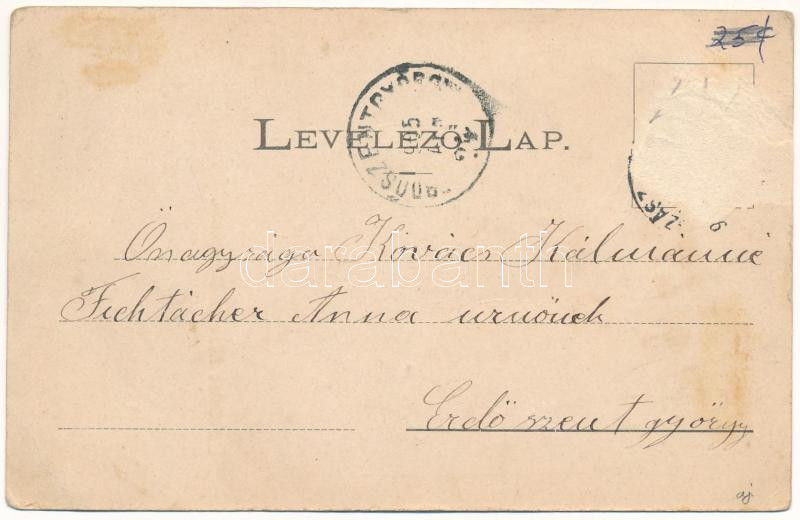 25¢
LEVELEZŐ-LAP.
Őnagysága Kovács Kálmánné
Fichtácher Anna urnőnek
Erdő szent györgy
darabanth